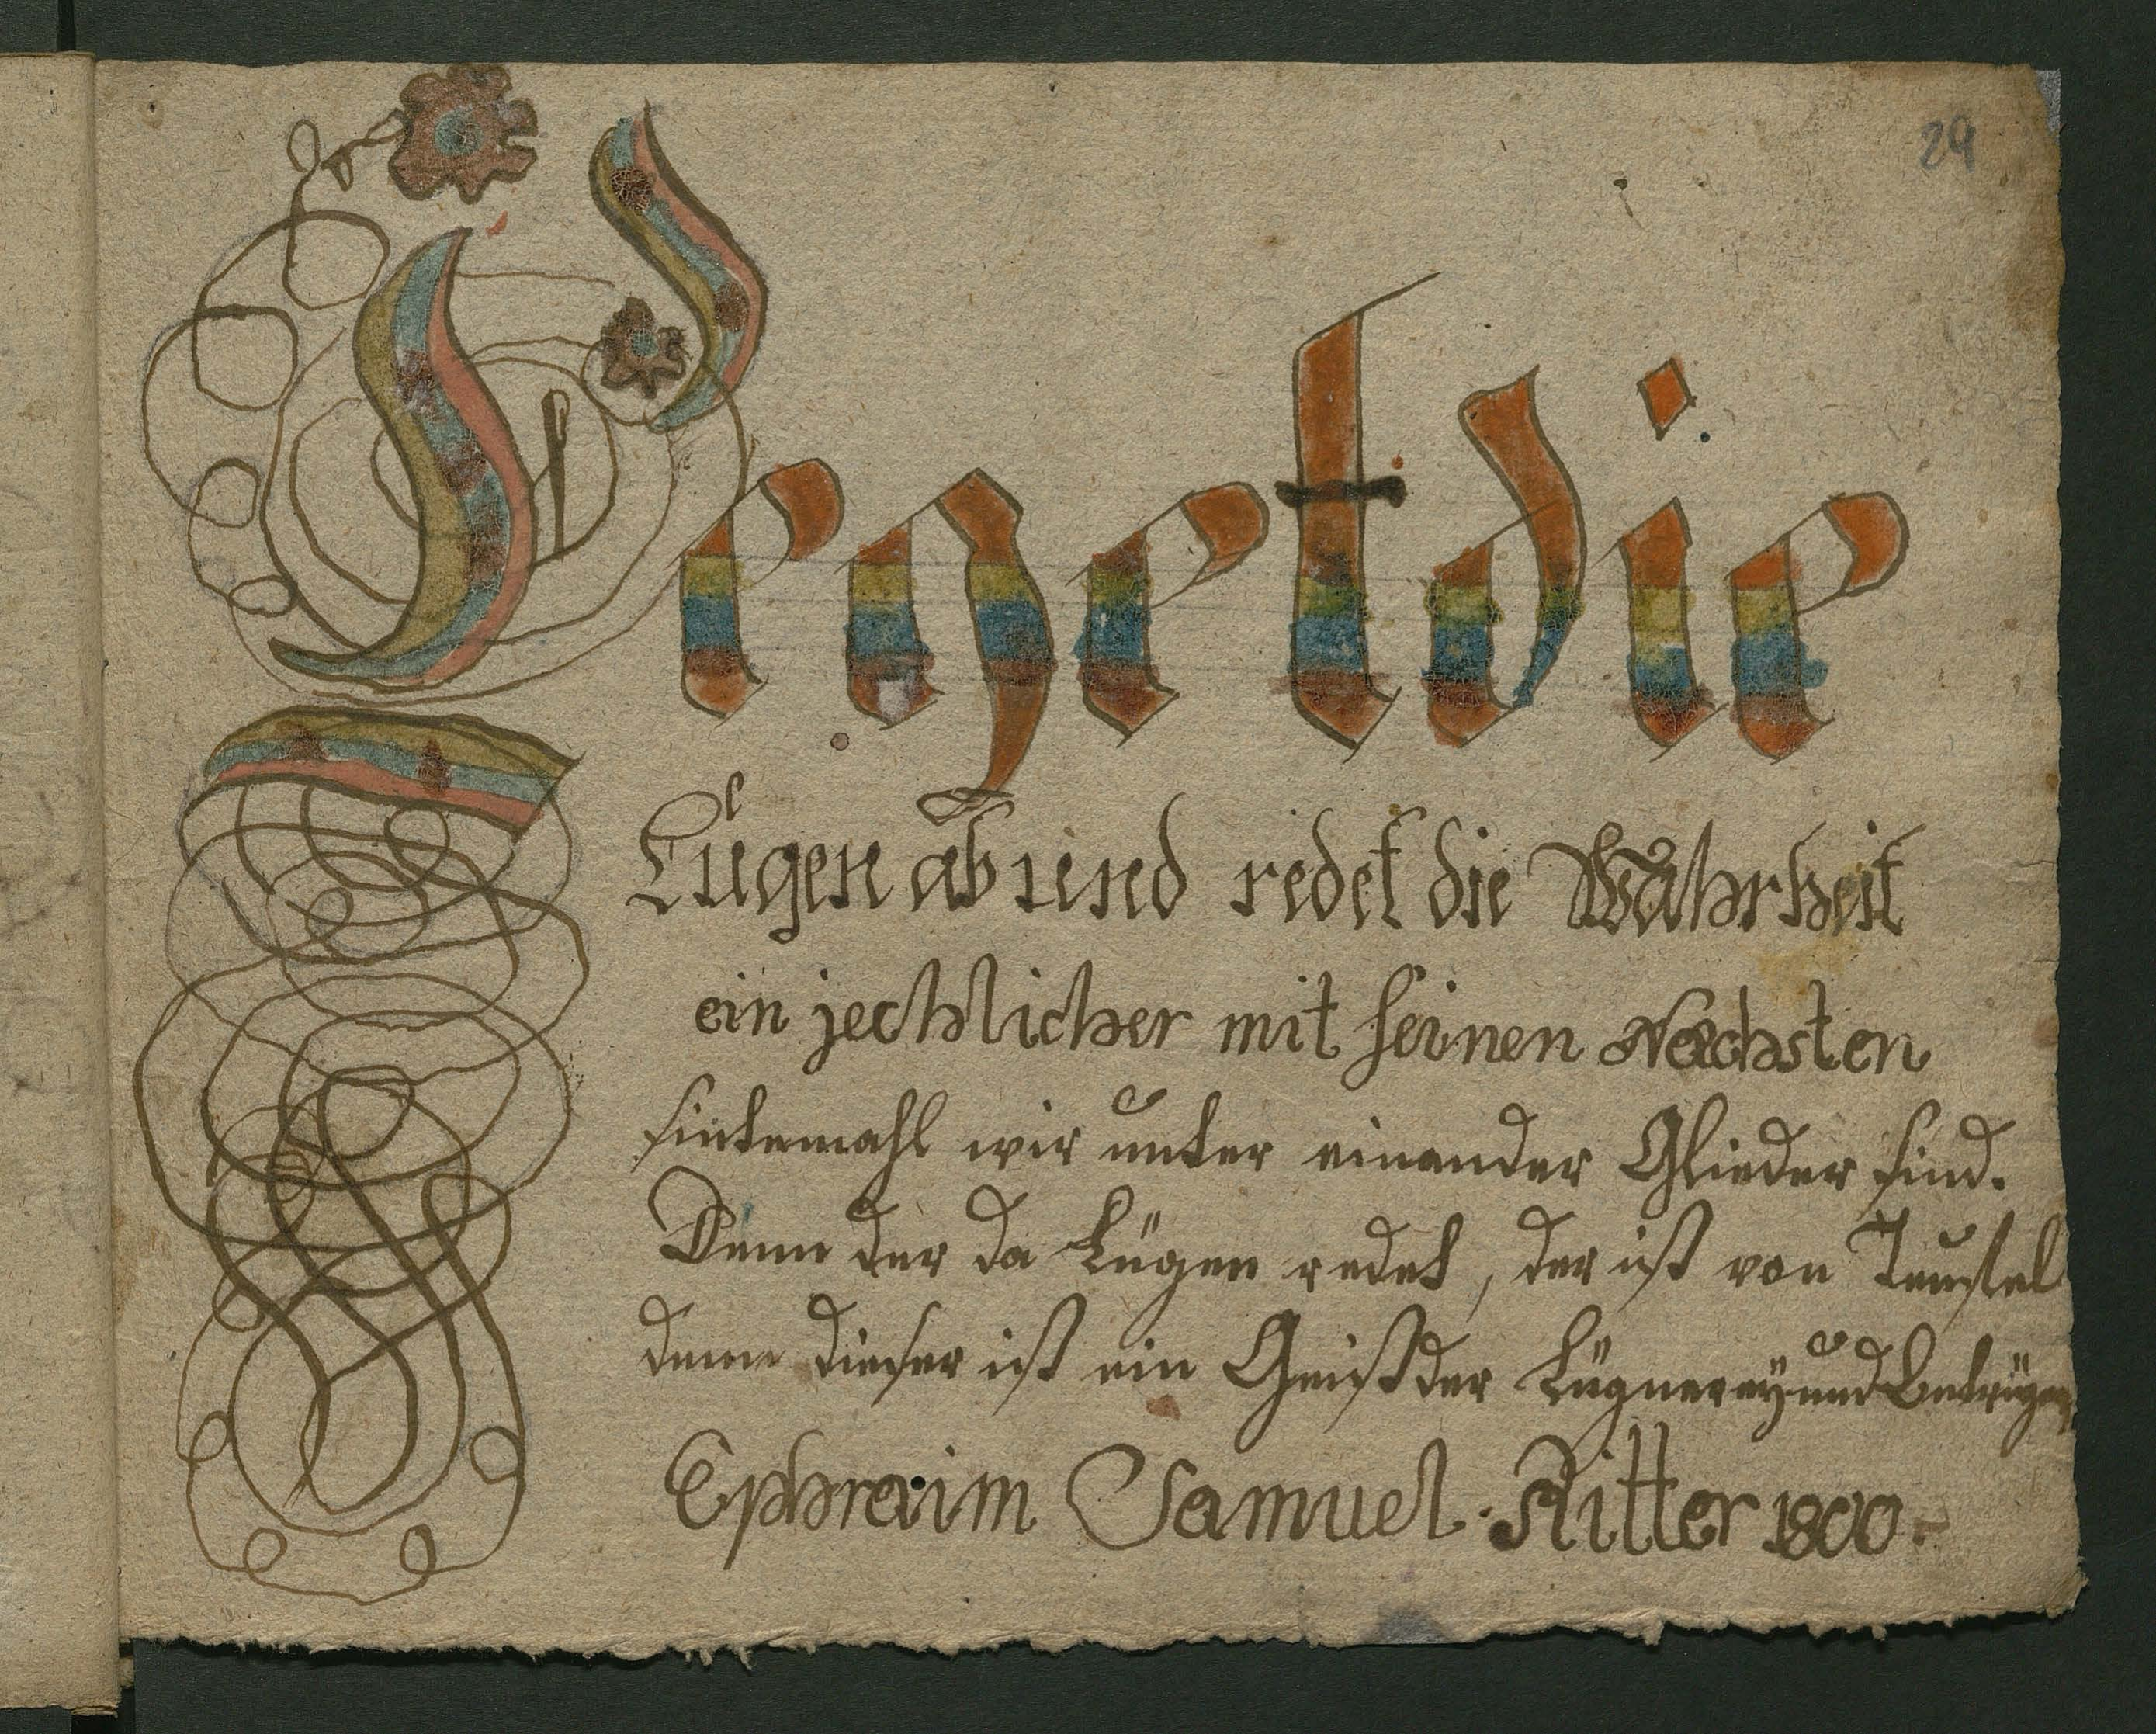 29
Leget die
Lügen ab und redet die Wahrheit
ein jechlicher mit seinen Nechsten
sintemahl wir unter einander Glieder sind.
Denn der da Lügen redet, der ist von Teufel
denn dieser ist ein Geist der Lügnerey und
Ephraim Samuel Ritter 1800.